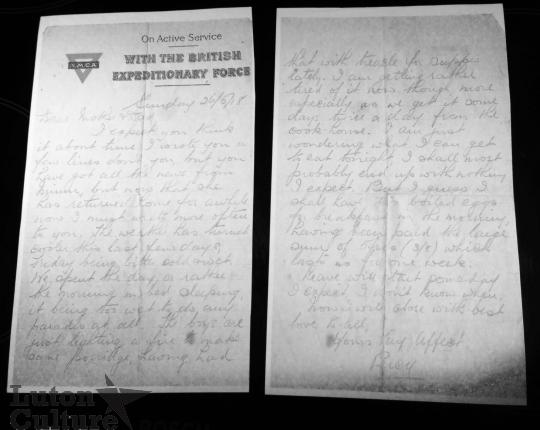 On Active Service
WITH THE BRITISH
EXPEDITIONARY FORCE
Y.M.C.A
Sunday 26/5/18
Dear Mother & Dad
I expect you think
it about time I wrote you a
few lines don't you, but you
have got all the news from
but now that she
has returned home for awhile
now I must write more often
to you. The weather has turned
cooler this last few days,
Friday being both cold & wet.
We spent the day or rather
the morning in bed sleeping,
it being too wet to do any
parades at all. The boys are
just lighting a fire to make
some porridge, having had
that with treacle for supper
lately. I am getting rather
tired of it now though more
especially as we get it some
days twice a day from the
cook house. I am just
wondering what I can get
to eat tonight, I shall most
probably end up with nothing
I expect. But I guess I
shall have boiled eggs
for breakfast in the morning,
having been paid the large
sum of (3/8) which
lasts us for one week.
Leave will start some day
I expect, I don't know when,
now will close with best
love to all,
Yours Very Affect
Luton
Culture